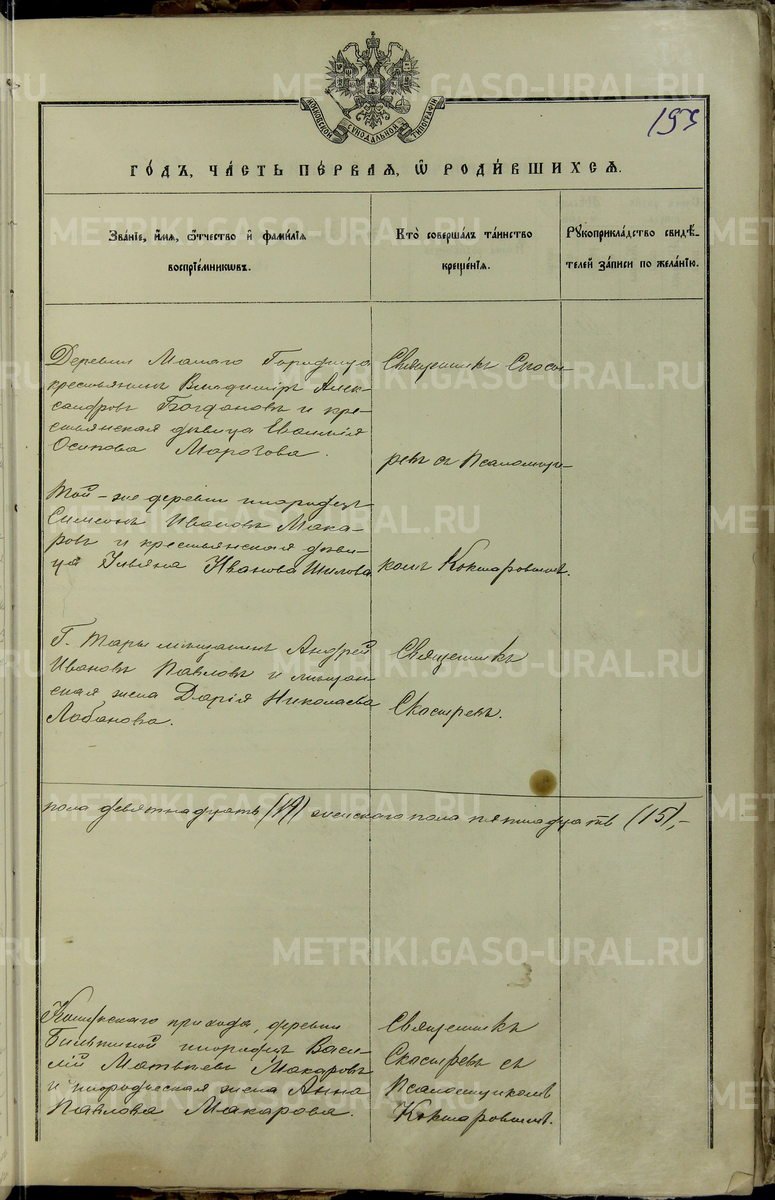 МОСКОВСКОЙ СѴНОДАЛЬНОЙ ТИПОГРАФІИ
ГО́ДЪ, ЧА́СТЬ ПЕ́РВАѦ, Ѡ҆ РОДИ́ВШИХСѦ.
Зва́нїе, и҆́мѧ, ѻ҆́тчество и҆ фами́лїѧ
воспрїе́мникѡвъ.
Кто̀ соверша́лъ та́инство
креще́нїѧ.
Рꙋкоприкла́дство свидѣ́-
телей за́писи по жела́нїю.
Деревни Малаго
крестьянинъ Владиміръ Алек-
сандровъ Богдановъ и кре-
стьянская дѣвица
Осипова Морозова.
Священникъ Скосы-
ревъ съ Псаломщи-
комъ Кокшаровымъ.
Той-же деревни инородецъ
Симеонъ Ивановъ Мака-
ровъ и крестьянская дѣви-
ца Ульяна Иванова Шилова
Г. Тары мѣщанинъ Андрей
Ивановъ Павловъ и мѣщан-
ская жена Дарія Николаева
Лобанова.
Священникъ
Скосыревъ.
пола девятнадцать (19) женскаго пола пятнадцать (15),-
прихода, деревни
инородецъ Васи-
лій Матвѣевъ Макаровъ
и инородческая жена Анна
Павлова Макарова.
Священникъ
Скосыревъ съ
Псаломщикомъ
Кокшаровымъ.
METRIKI.GASO-URAL.RU